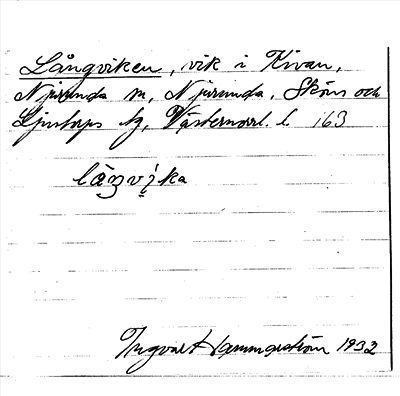 Långviken, vik i Kivan,
Njurunda sn, Njurunda, Sköns och
Ljustorps tg, Västernorrl. l 163
lå̱ŋvi̱ka
Ingvar Hammarström 1932